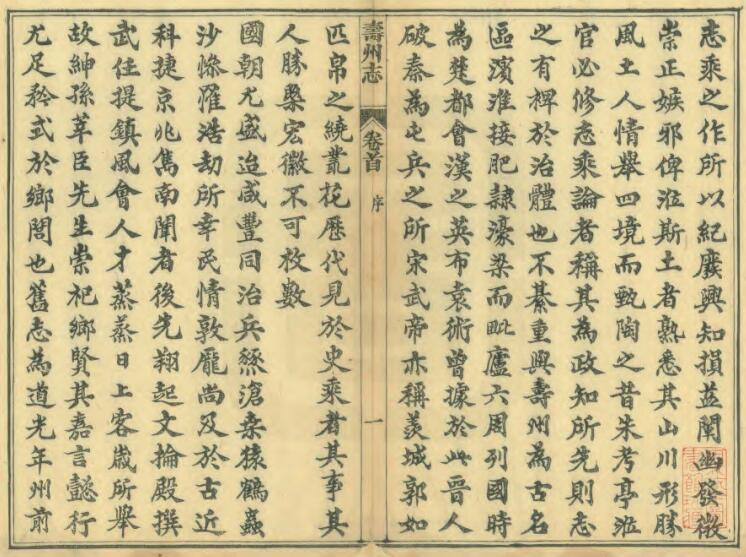 志乘之作所以紀廢興知損益闡幽發微
崇正嫉邪俾涖斯土者熟悉其山川形勝
風土人情舉四境而甄陶之昔朱考亭涖
官必修志乘論者稱其為政知所先則志
之有裨於治體也不綦重與壽州為古名
區濱淮接肥隷濠梁而毗廬六周列國時
為楚都會漢之英布袁術曾據於此晉人
破秦為屯兵之所宋武帝亦稱羨城郭如
壽州志
卷首
序
一
匹帛之繞叢花歷代見於史乘者其事其
人勝槩宏徽不可枚數
國朝尤盛迨咸豐同治兵燹滄桑猿鶴蟲
沙慘罹浩劫所幸民情敦龐尚及於古近
科捷京兆雋南闈者後先翔起文掄殿撰
武任提鎮風會人才蒸蒸日上客歲所舉
故紳孫莘臣先生崇祀鄉賢其嘉言懿行
尤足矜式於鄉閭也舊志為道光年州前